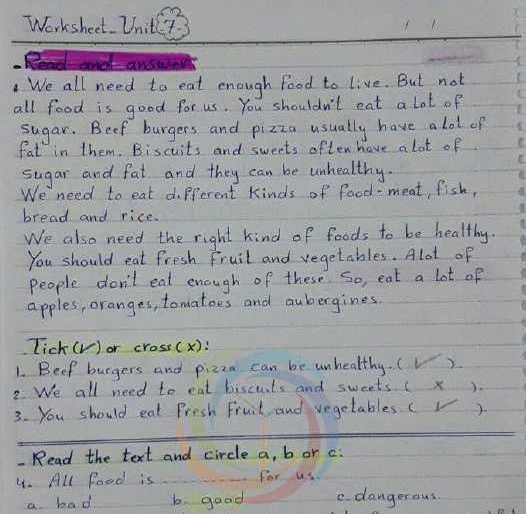 Worksheet_Unit 7
/ /
- Read and answer
. We all need to eat enough food to live. But not
all food is good for us. You shouldn't eat a lot of
sugar. Beef burgers and pizza usually have a lot of
fat in them. Biscuits and sweets often have a lot of
sugar and fat and they can be unhealthy.
We need to eat different kinds of food - meat, fish,
bread and rice.
We also need the right kind of foods to be healthy.
You should eat fresh fruit and vegetables. A lot of
people don't eat enough of these. So, eat a lot of
apples, oranges, tomatoes and aubergines.
- Tick (✓) or cross (x):
1. Beef burgers and pizza can be unhealthy. ( ✓ ).
2. We all need to eat biscuits and sweets. ( x ).
3. You should eat fresh fruit and vegetables. ( ✓ ).
- Read the text and circle a, b or c:
4. All food is ............ for us.
a. bad b. good c. dangerous